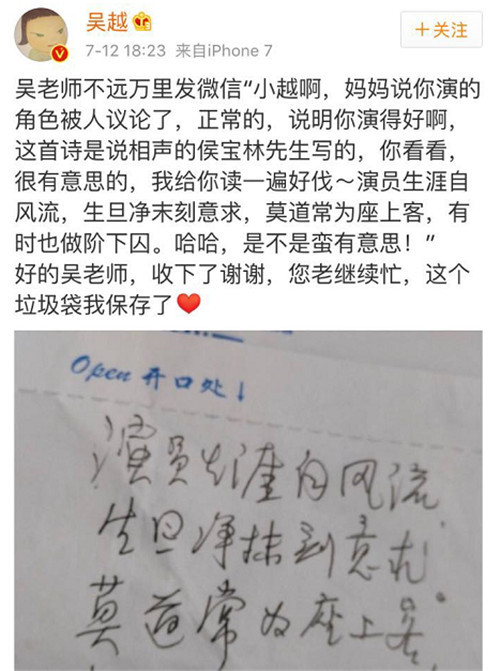 吴越
7-12 18:23 来自iPhone 7
+关注
吴老师不远万里发微信“小越啊，妈妈说你演的
角色被人议论了，正常的，说明你演得好啊，
这首诗是说相声的侯宝林先生写的，你看看，
很有意思的，我给你读一遍好伐～演员生涯自
风流，生旦净末刻意求，莫道常为座上客，有
时也做阶下囚。哈哈，是不是蛮有意思！”
好的吴老师，收下了谢谢，您老继续忙，这个
垃圾袋我保存了❤
Open 开口处↓
演员生涯自风流
生旦净抹刻意求。
莫道常为座上客